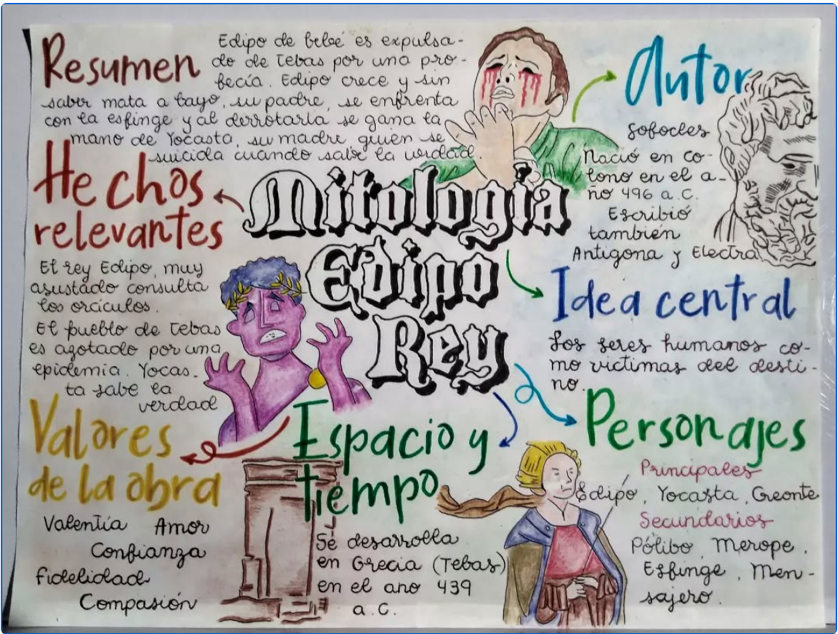 Resumen
Edipo de bebé es expulsa-
do de Tebas por una pro-
fecía. Edipo crece y sin
saber mata a Layo, su padre, se enfrenta
con la esfinge y al derrotarla se gana la
mano de Yocasta, su madre quien se
suicida cuando sabe la verdad
Autor
Sofocles
Nació en co-
lono en el a-
ño 496 a.C.
Escribió
también
Antigona y Electra
Mitología
Edipo
Rey
Hechos
relevantes
El rey Edipo, muy
asustado consulta
los oráculos.
El pueblo de Tebas
es azotado por una
epidemia. Yocas-
ta sabe la
verdad
Idea central
Los seres humanos co-
mo victimas del desti-
no
Valores
de la obra
Valentía Amor
Confianza
Fidelidad
Compasión
Espacio y
tiempo
Se desarrolla
en Grecia (Tebas)
en el ano 439
a.C.
Personajes
Principales
Edipo, Yocasta, Creonte
Secundarios
Pólibo, Merope,
Esfinge, Men-
sajero.